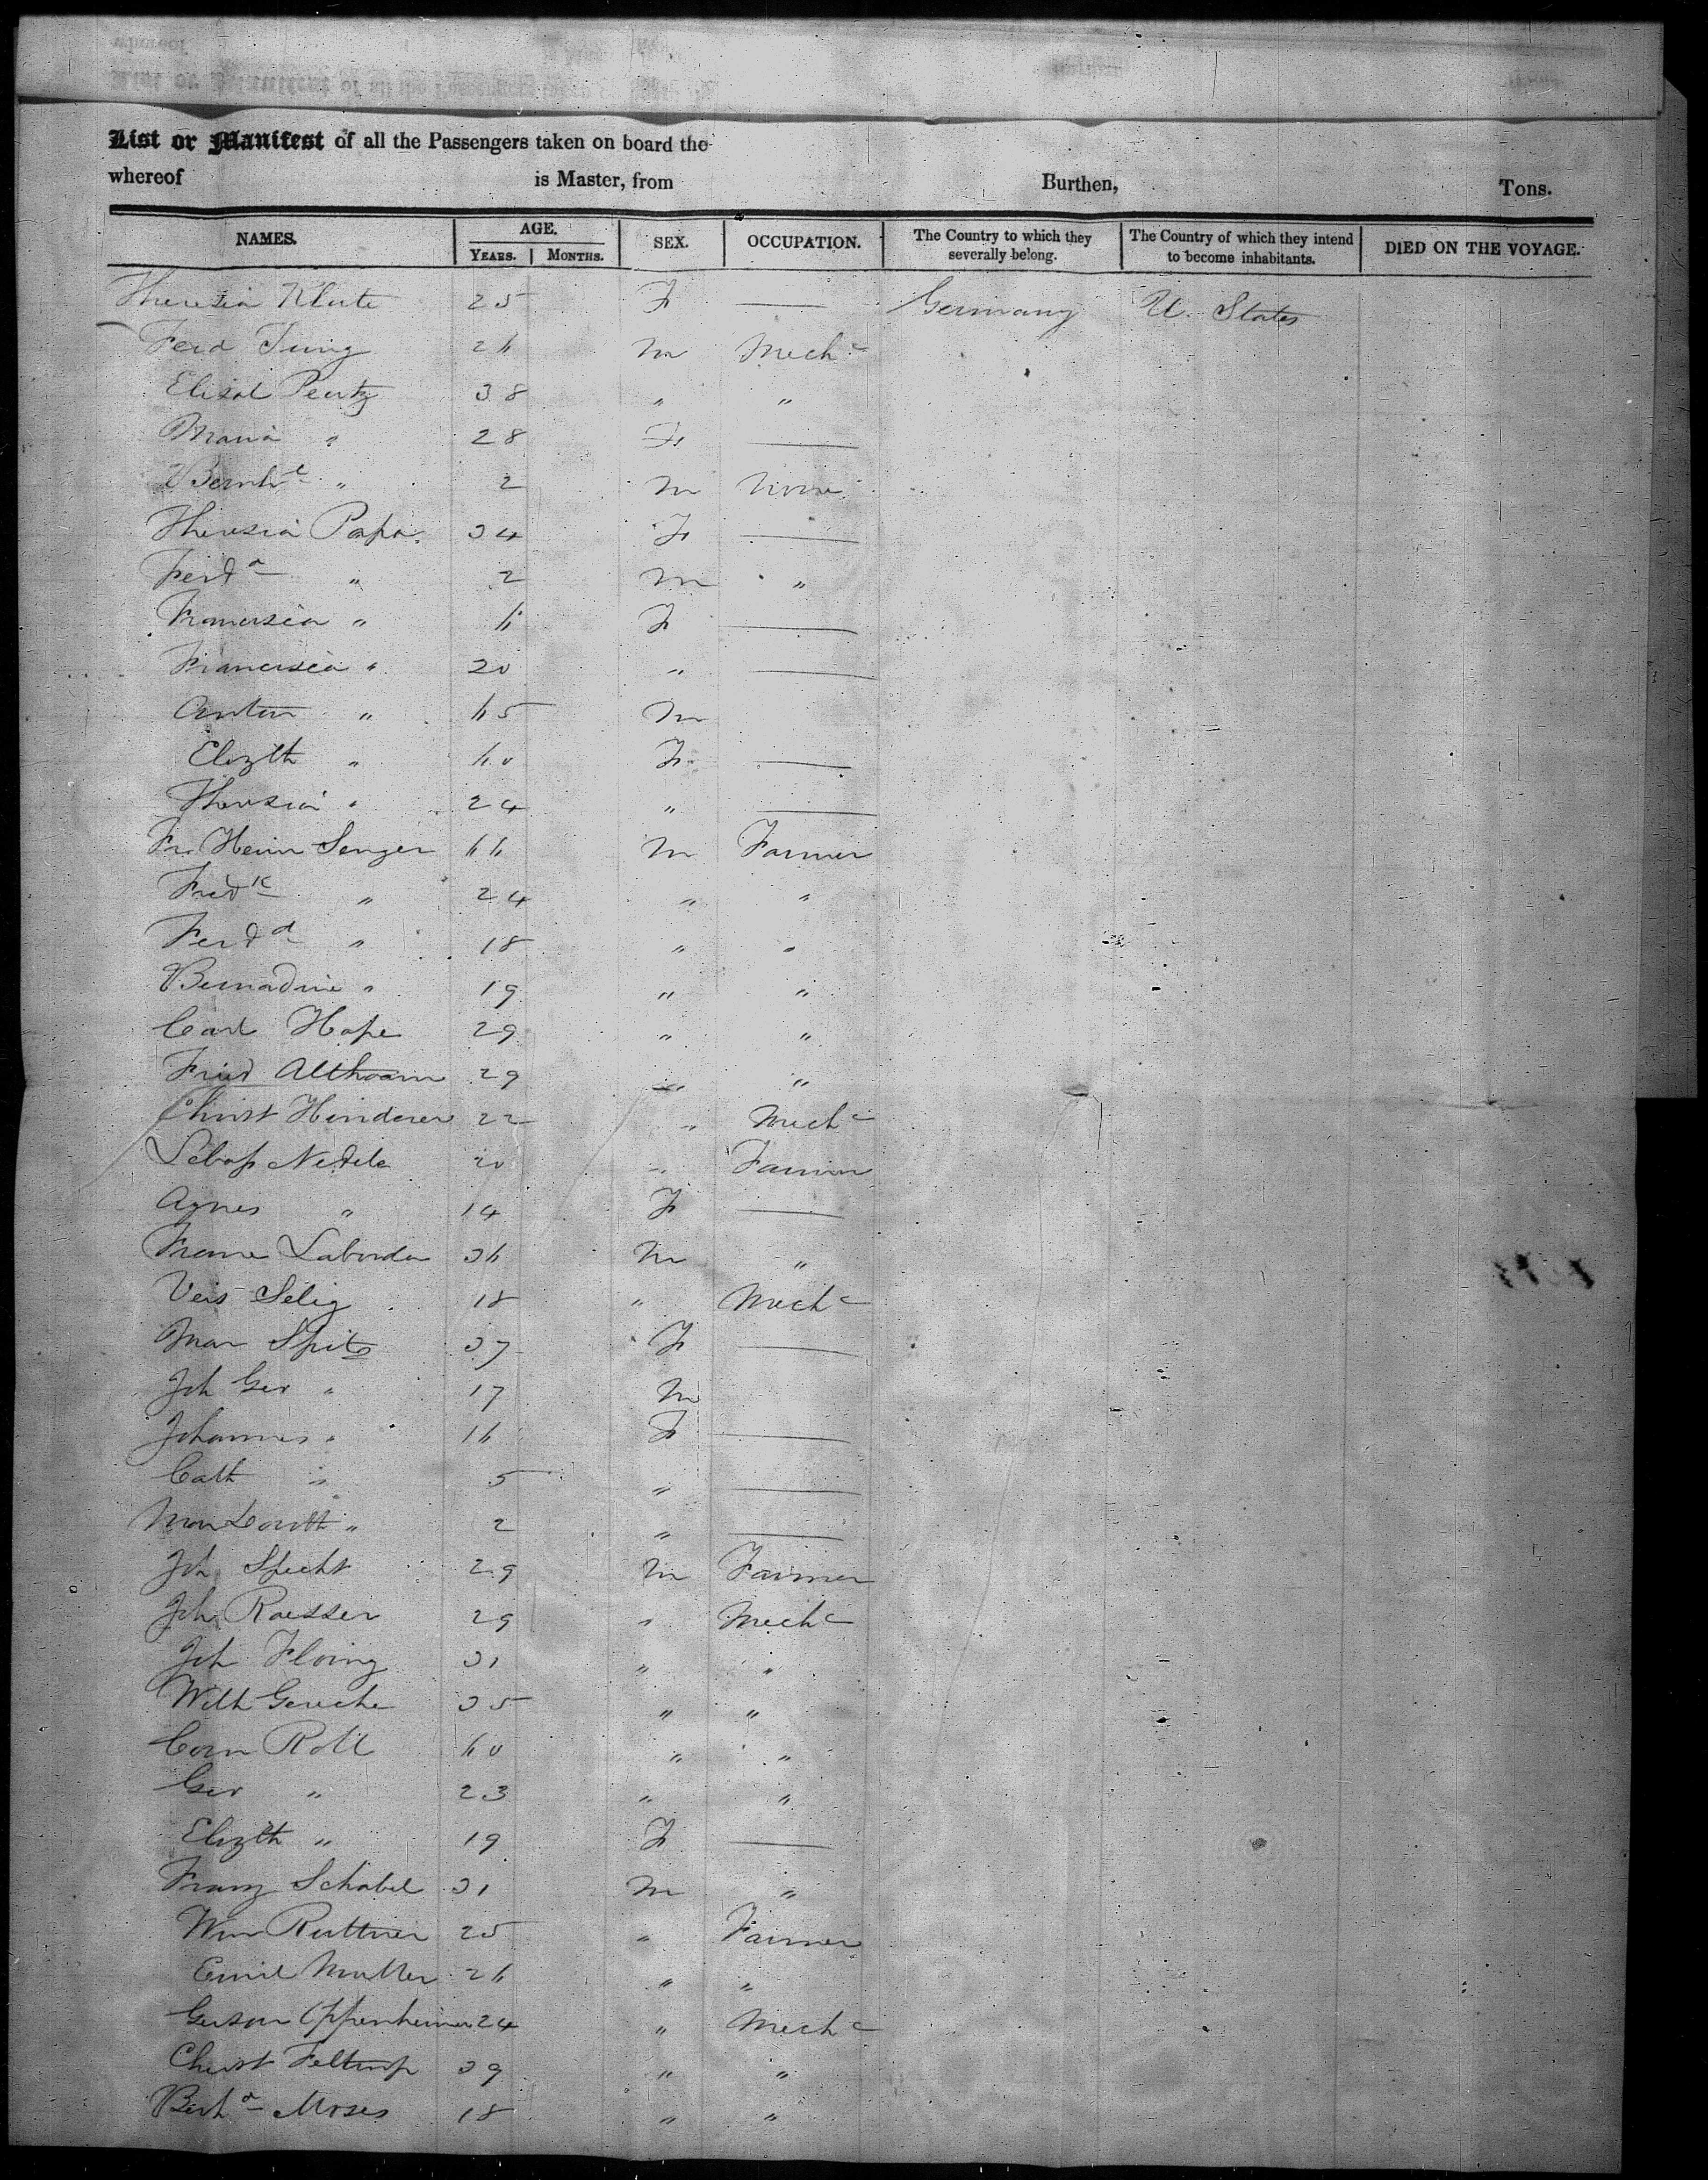 List or Manifest of all the Passengers taken on board the
whereof is Master, from Burthen, Tons.
NAMES. AGE. SEX. OCCUPATION. The Country to which they severally belong. The Country of which they intend to become inhabitants. DIED ON THE VOYAGE.
YEARS. MONTHS.
Theresia Klute 25 F — Germany U. States
Ferd Jung 26 M Mechc
Elisal Peutz 38 " "
Maria " 28 F —
Bernhd " 2 M None
Theresia Papa 34 F —
Ferd " 2 M "
Francisca " 6 F —
Francisca " 20 " —
Anton " 65 M
Elizth " 60 F —
Theresia " 24 " —
Fr. Heinr Senger 66 M Farmer
Fredk " 24 " "
Ferdd " 18 " "
Bernadine " 19 " "
Carl Hope 29 " "
Fried Althoam 29 " "
Christ Hinderer 22 " Mechc
Nedele 20 " Farmer
Agnes " 14 F —
Laborda 36 M "
Veis Selig 18 " Mechc
Mar Spitz 37 F —
Joh Geo " 17 M
Johannes " 16 F —
Cath " 5 " —
Mar " 2 " —
Joh Specht 29 M Farmer
Joh Raesser 29 " Mechc
Joh Floing 31 " "
Wilh Geuche 35 " "
Corn Roll 60 " "
Geo " 23 " "
Elizth " 19 F —
Franz Schabel 31 M "
Wm Ruttner 25 " Farmer
Emil Muller 26 " "
Gerson Oppenheimer 24 " Mechc
Christ Feltrop 39 " "
Moses 18 " "